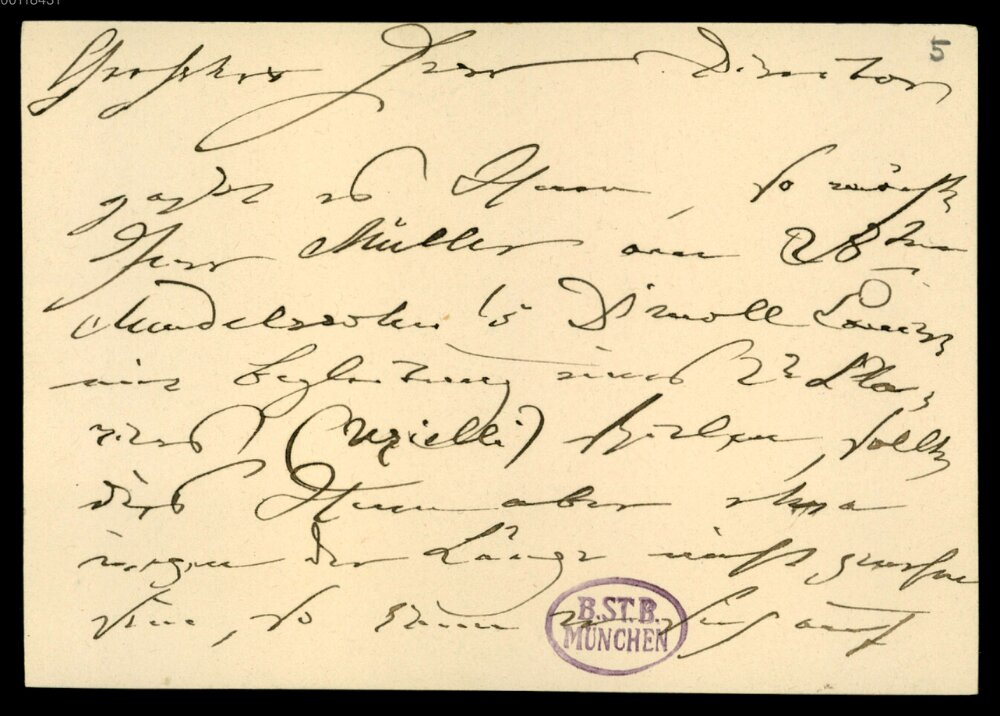 5
Geehrter Herr Director
paßt es Ihnen, so möchte
Herr Müller am 28ten
Mendelssohn's D moll Concert
mit Begleitung eines 2n Cla-
viers (Uzielli) spielen, sollte
dies Ihnen aber etwa
wegen der Länge nicht genehm
sein, so kann er sich auch
B.ST.B.
MÜNCHEN